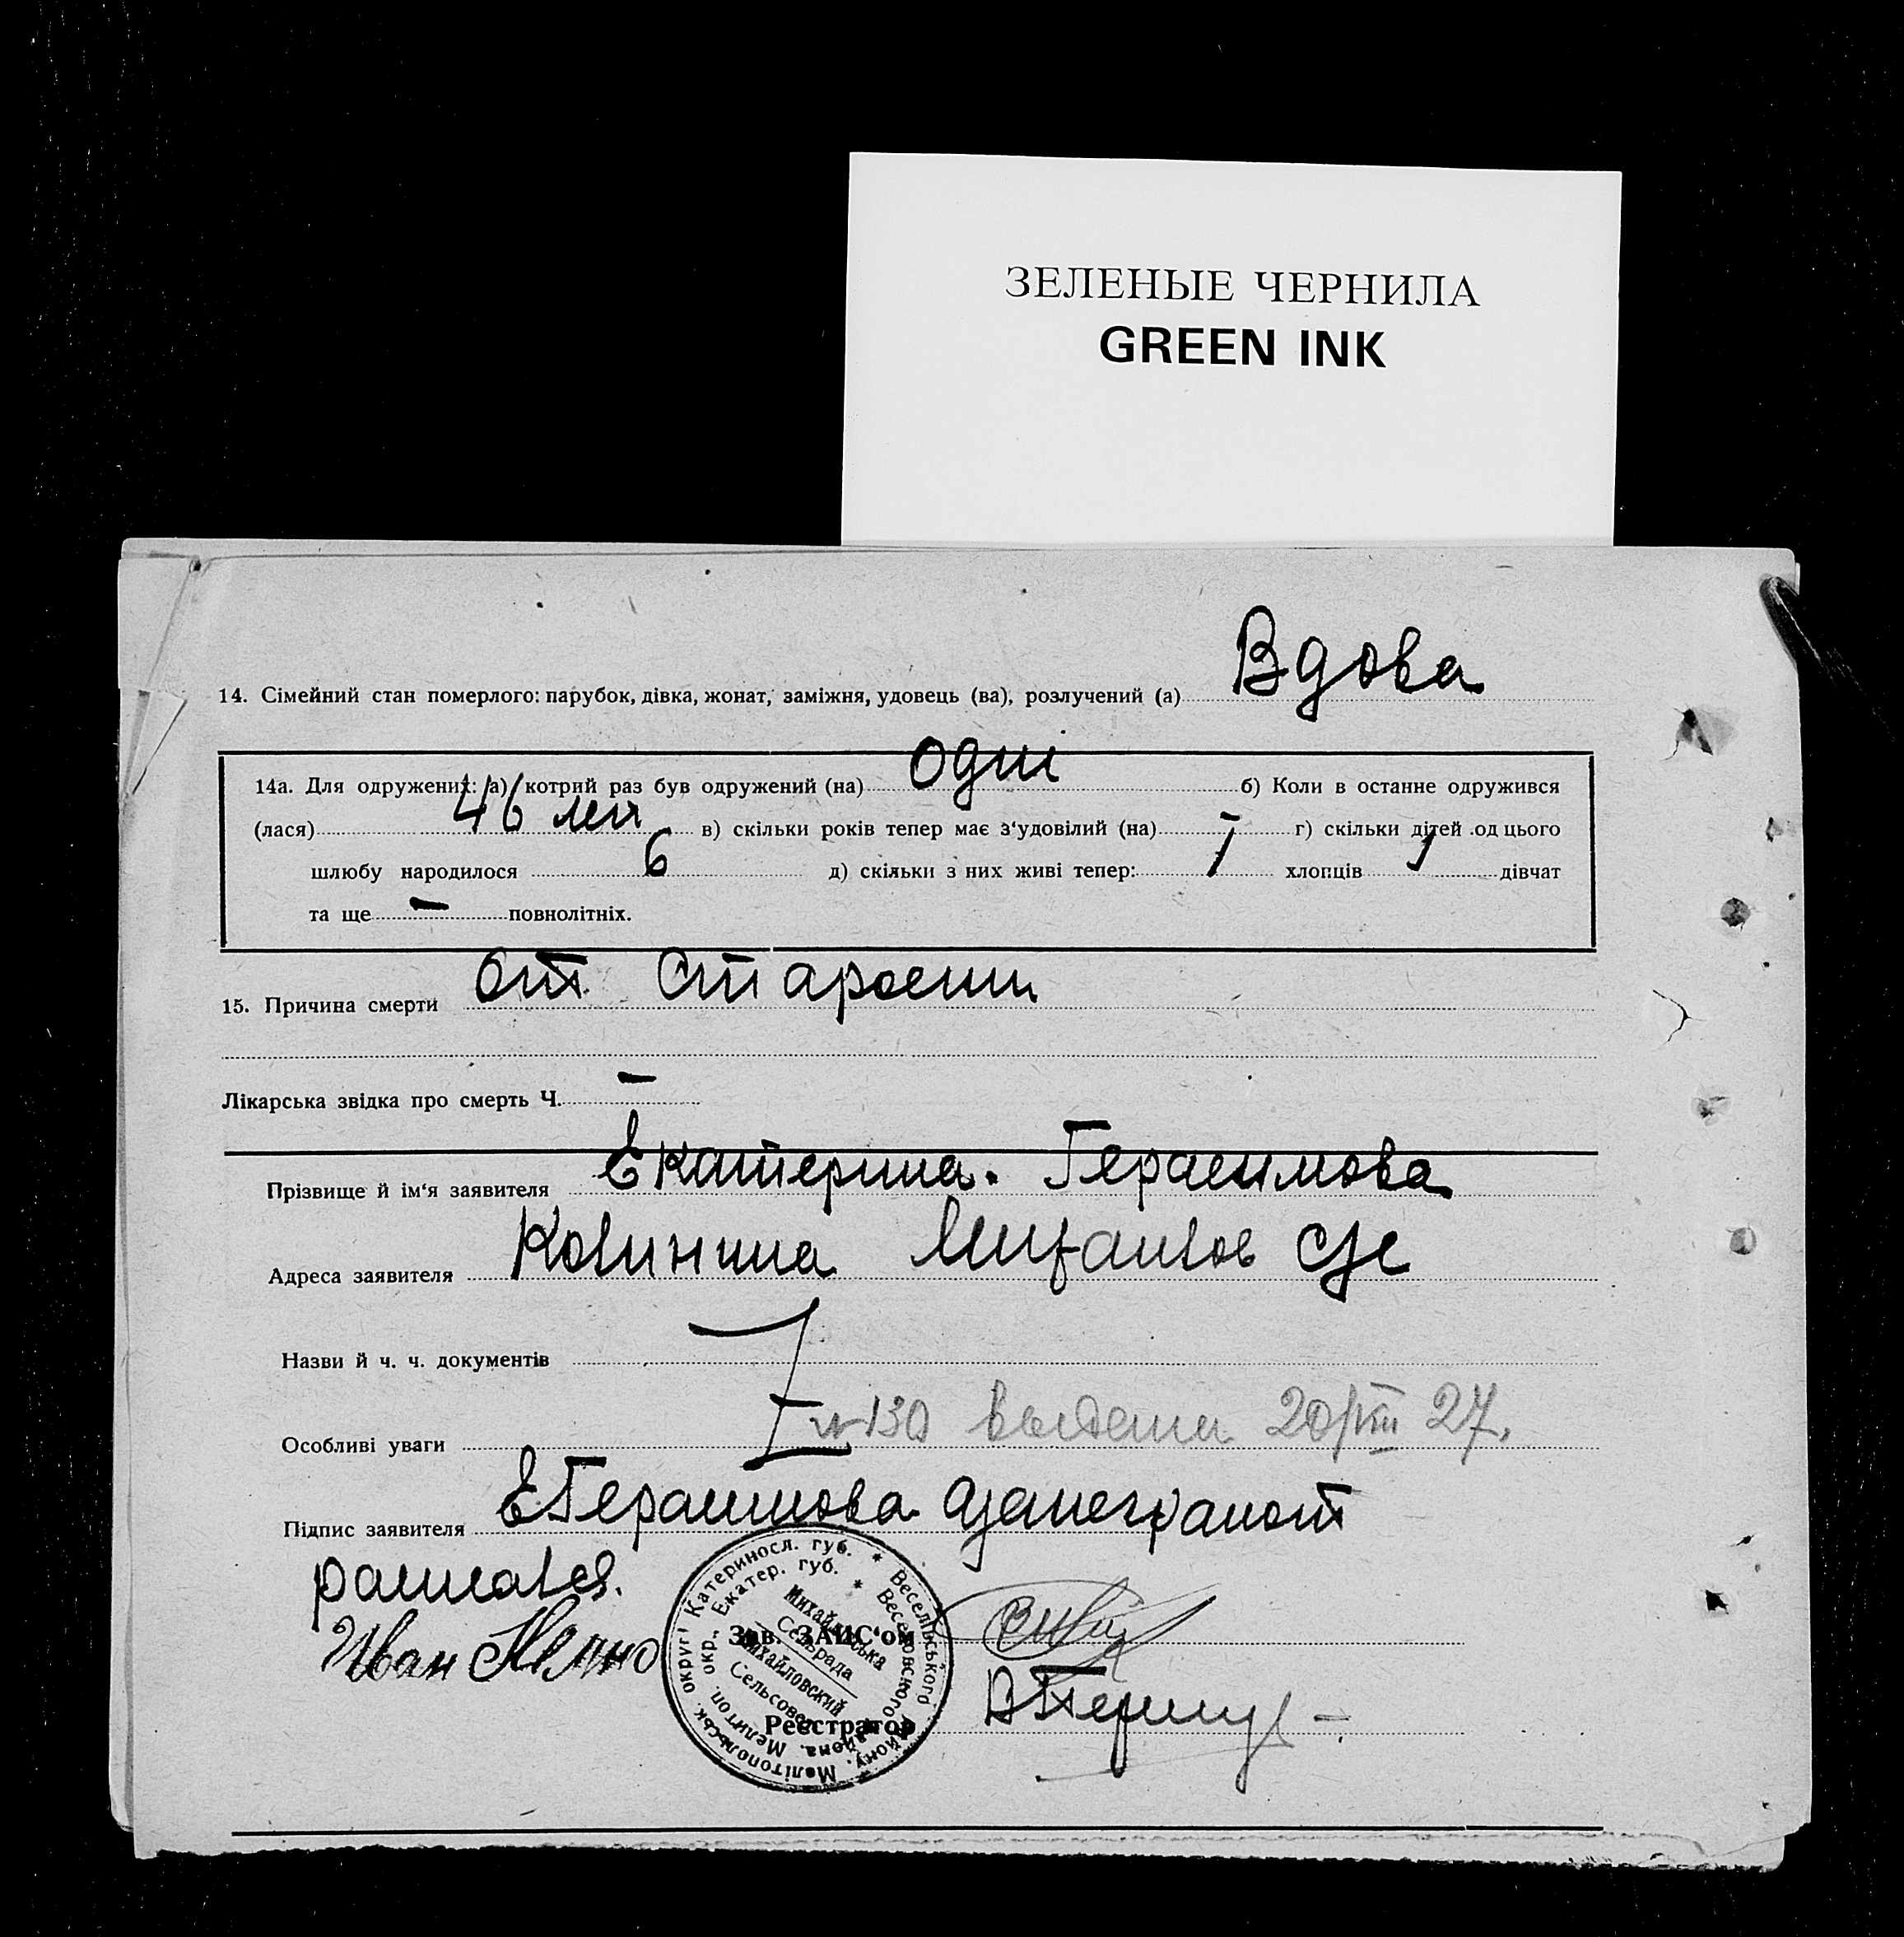 ЗЕЛЕНЫЕ ЧЕРНИЛА
GREEN INK
14. Сімейний стан померлого: парубок, дівка, жонат, заміжня, удовець (ва), розлучений (а) Вдова
14а. Для одружених: а) котрий раз був одружений (на) одпі б) Коли в останне одружився
(лася) 46 лет в) скільки років тепер має з'удовілий (на) г) скільки дітей од цього
шлюбу народилося 6 д) скільки з них живі тепер: 1 хлопців 1 дівчат
та ще — повнолітніх.
15. Причина смерти от старости
Лікарська звідка про смерть Ч. —
Прізвище й ім'я заявителя Екатерина. Герасимова
Адреса заявителя с/с
Назви й ч. ч. документів
Особливі уваги №130 выдана 20/VIII 27.
Підпис заявителя Е Герасимова
Иван
Зав. ЗАИС'ом
Реєстратор
Мелітопольськ. округи Катериносл. губ. * Весельського району,
Мелитоп. окр., Екатер. губ. * Веселовского района.
Михайлівська
Сельрада
Михайловский
Сельсовет